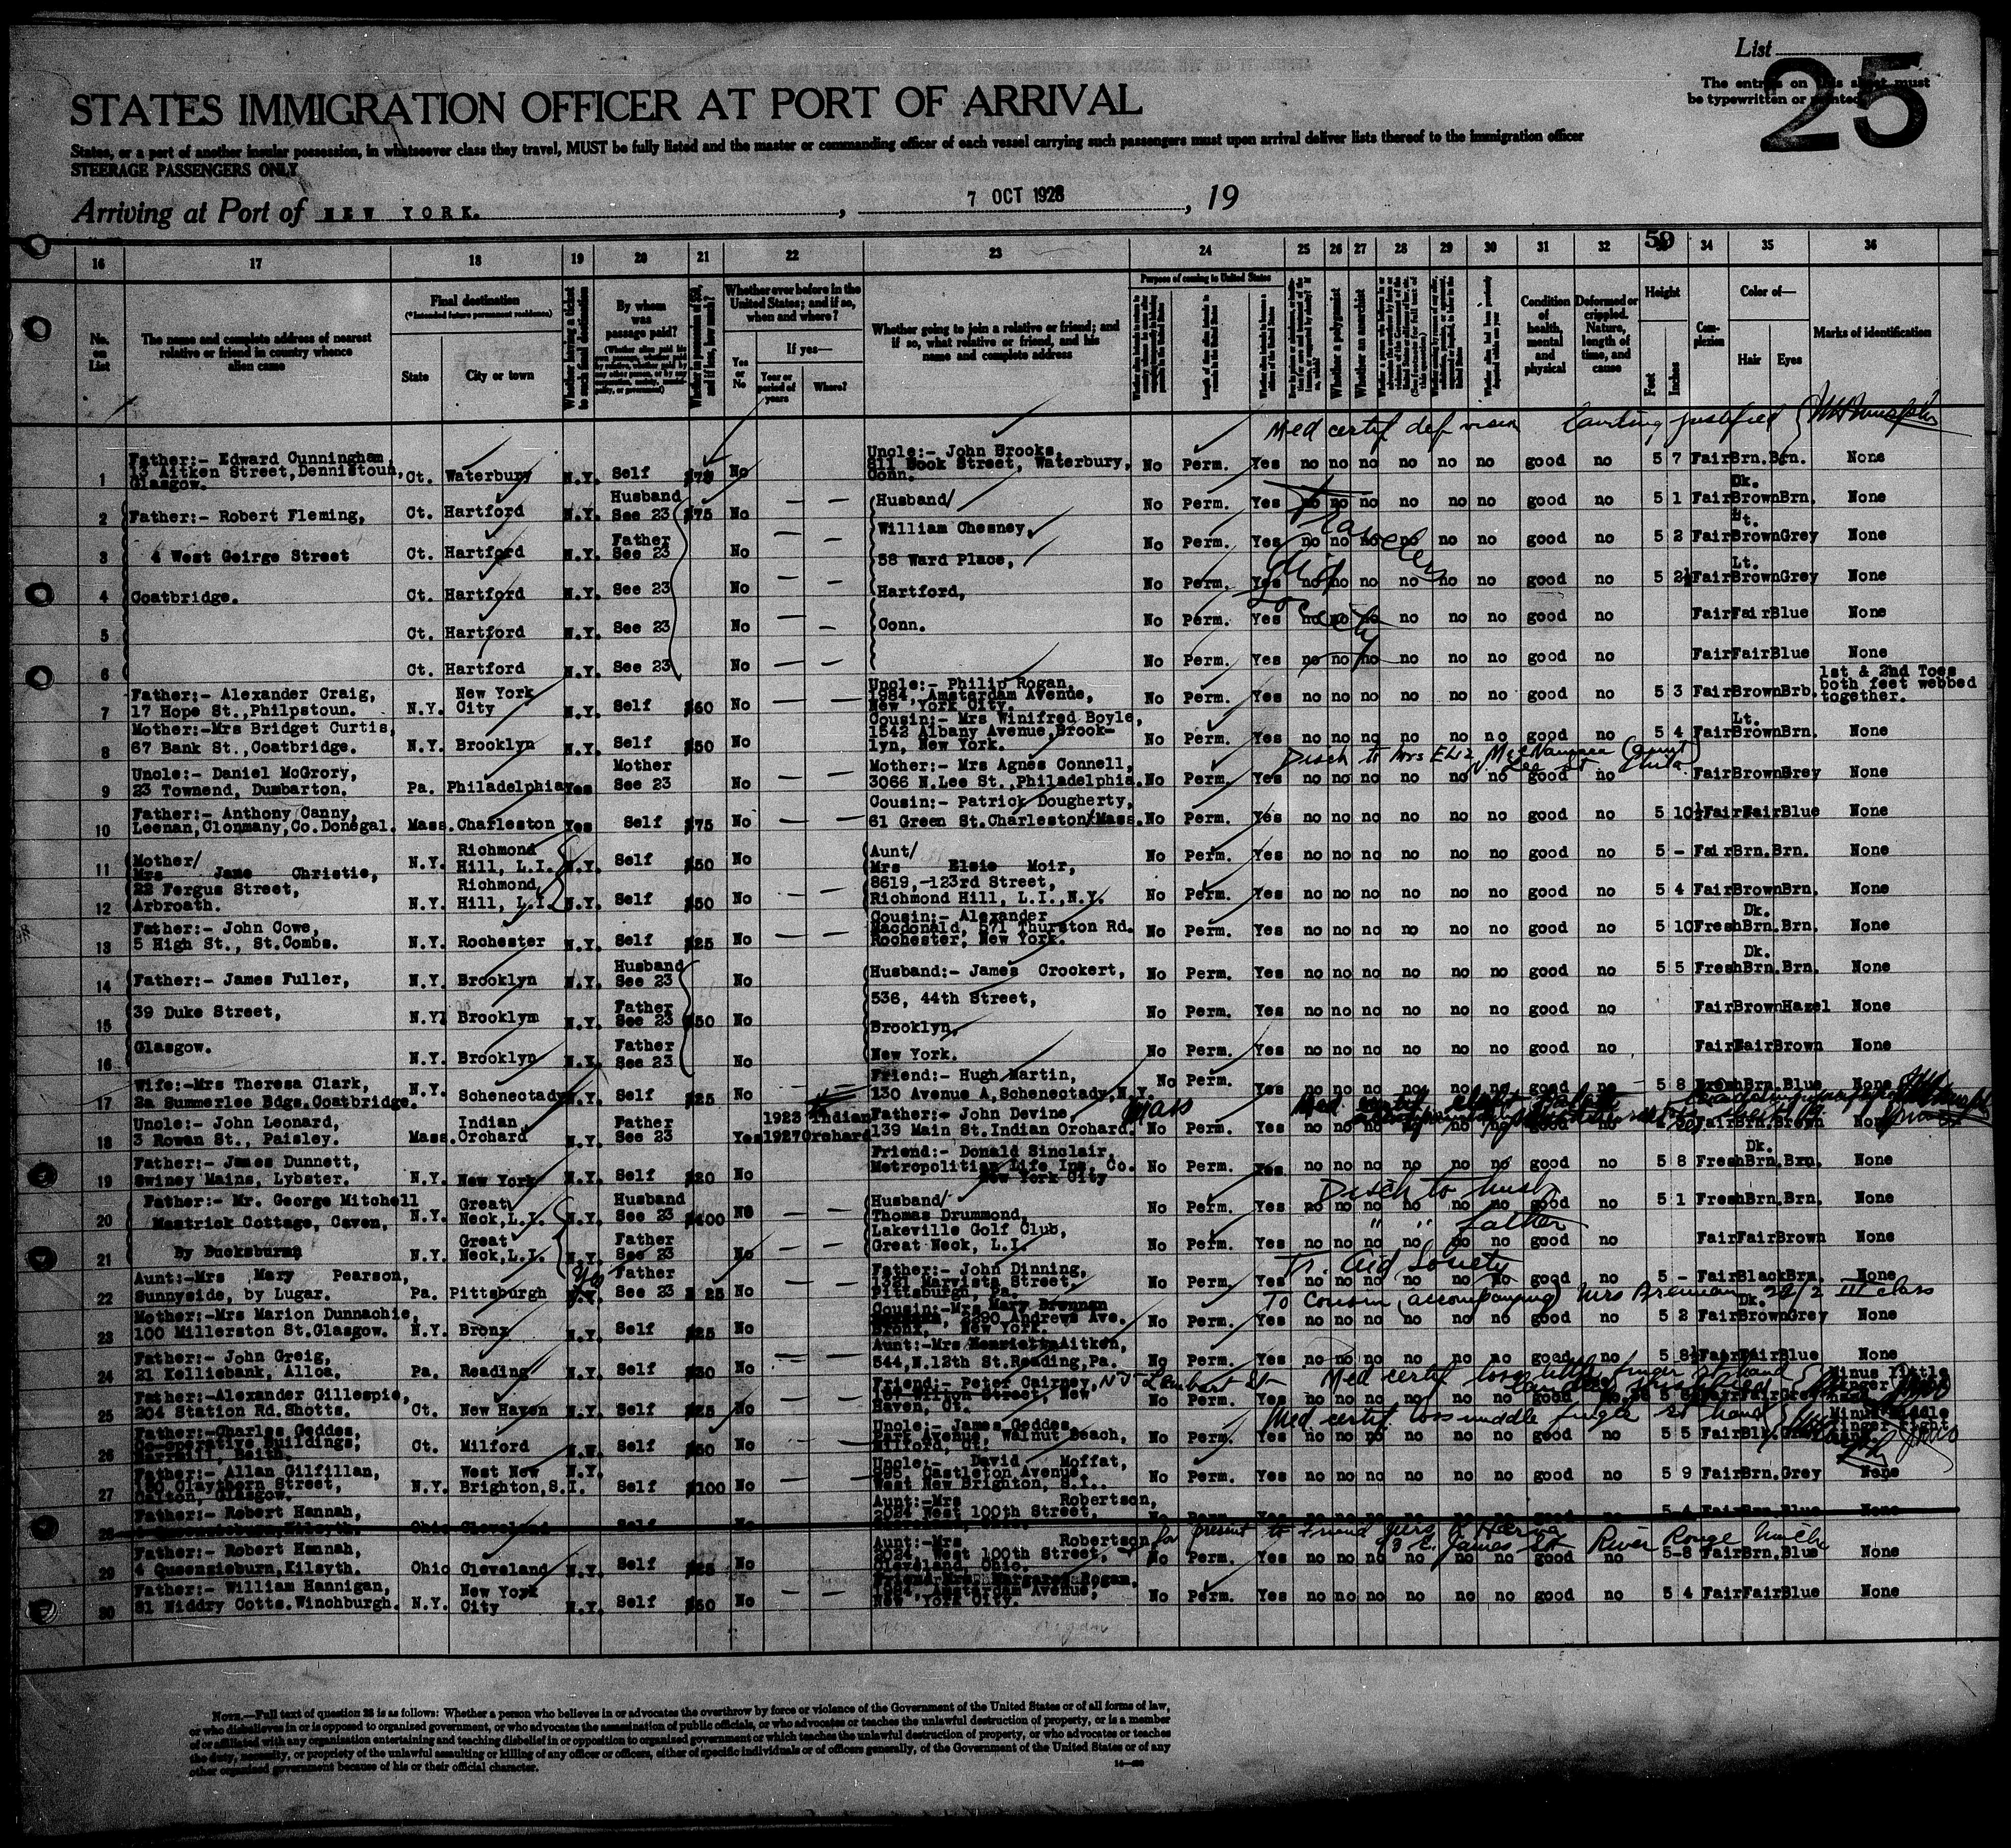 List
25
The entries on this sheet must
be typewritten or printed
STATES IMMIGRATION OFFICER AT PORT OF ARRIVAL
States, or a port of another insular possession, in whatsoever class they travel, MUST be fully listed and the master or commanding officer of each vessel carrying such passengers must upon arrival deliver lists thereof to the immigration officer
STEERAGE PASSENGERS ONLY
Arriving at Port of NEW YORK. , 7 OCT 1928 , 19
59
16 17 18 19 20 21 22 23 24 25 26 27 28 29 30 31 32 34 35 36
No. on List
The name and complete address of nearest relative or friend in country whence alien came
Final destination
(*Intended future permanent residence)
State
City or town
Whether having a ticket to such final destination
By whom was passage paid?
Whether ever before in the United States; and if so, when and where?
Yes or No
If yes—
Year or period of years
Where?
Whether going to join a relative or friend; and if so, what relative or friend, and his name and complete address
Purpose of coming to United States
Whether a polygamist
Whether an anarchist
Condition of health, mental and physical
Deformed or crippled. Nature, length of time, and cause
Height
Feet
Inches
Complexion
Color of—
Hair
Eyes
Marks of identification
Med certif def vision
1 Father:- Edward Cunningham, 13 Aitken Street, Dennistoun, Glasgow. Ct. Waterbury N.Y. Self No Uncle:- John Brooks, 811 Cook Street, Waterbury, Conn. No Perm. Yes no no no no no no good no 5 7 Fair Brn. Brn. None
2 Father:- Robert Fleming, Ct. Hartford N.Y. Husband See 23 $75 No — — Husband/ No Perm. Yes no no no no no no good no 5 1 Fair Dk. Brown Brn. None
Travelers Aid Society
3 4 West Geirge Street Ct. Hartford N.Y. Father See 23 No — — William Chesney, No Perm. Yes no no no no no no good no 5 2 Fair Lt. Brown Grey None
4 Coatbridge. Ct. Hartford N.Y. See 23 No — — 58 Ward Place, Hartford, No Perm. Yes no no no no no no good no 5 2½ Fair Lt. Brown Grey None
5 Ct. Hartford N.Y. See 23 No — — Conn. No Perm. Yes no no no no no no good no Fair Fair Blue None
6 Ct. Hartford N.Y. See 23 No — — No Perm. Yes no no no no no no good no Fair Fair Blue None
7 Father:- Alexander Craig, 17 Hope St., Philpstoun. N.Y. New York City N.Y. Self $60 No — — Uncle:- Philip Rogan, 1984, Amsterdam Avenue, New York City. No Perm. Yes no no no no no no good no 5 3 Fair Brown Brb. 1st & 2nd Toes both feet webbed together.
8 Mother:-Mrs Bridget Curtis, 67 Bank St., Coatbridge. N.Y. Brooklyn N.Y. Self $50 No Cousin:- Mrs Winifred Boyle, 1542 Albany Avenue, Brooklyn, New York. No Perm. Yes no no no no no no good no 5 4 Fair Lt. Brown Brn. None
Disch to Mrs Eliz (Aunt) Lee St Phila
9 Uncle:- Daniel McGrory, 23 Townend, Dumbarton. Pa. Philadelphia Yes Mother See 23 No — — Mother:- Mrs Agnes Connell, 3066 N.Lee St., Philadelphia. No Perm. Yes no no no no no no good no Fair Brown Grey None
10 Father:- Anthony Canny, Leenan, Clonmany, Co. Donegal. Mass. Charleston Yes Self $75 No — — Cousin:- Patrick Dougherty, 61 Green St. Charleston, Mass. No Perm. Yes no no no no no no good no 5 10½ Fair Fair Blue None
11 Mother/ Mrs Jane Christie, N.Y. Richmond Hill, L.I. N.Y. Self $50 No — — Aunt/ Mrs Elsie Moir, No Perm. Yes no no no no no no good no 5 - Fair Brn. Brn. None
12 22 Fergus Street, Arbroath. N.Y. Richmond Hill, L.I. N.Y. Self $50 No — — 8619,-123rd Street, Richmond Hill, L.I., N.Y. No Perm. Yes no no no no no no good no 5 4 Fair Brown Brn. None
13 Father:- John Cowe, 5 High St., St.Combs. N.Y. Rochester N.Y. Self $25 No — — Cousin:- Alexander Macdonald, 571 Thurston Rd. Rochester, New York. No Perm. Yes no no no no no no good no 5 10 Fresh Dk. Brn. Brn. None
14 Father:- James Fuller, N.Y. Brooklyn N.Y. Husband See 23 No Husband:- James Crockert, No Perm. Yes no no no no no no good no 5 5 Fresh Dk. Brn. Brn. None
15 39 Duke Street, N.Y. Brooklyn N.Y. Father See 23 $50 No 536, 44th Street, Brooklyn, No Perm. Yes no no no no no no good no Fair Brown Hazel None
16 Glasgow. N.Y. Brooklyn N.Y. Father See 23 No New York. No Perm. Yes no no no no no no good no Fair Fair Brown None
17 Wife:-Mrs Theresa Clark, 2a Summerlee Bdgs. Coatbridge. N.Y. Schenectady N.Y. Self $25 No Friend:- Hugh Martin, 130 Avenue A, Schenectady, N.Y. No Perm. Yes no no no no no no good no 5 8 Fresh Brn. Blue None
Mass
18 Uncle:- John Leonard, 3 Rowan St., Paisley. Mass. Indian Orchard N.Y. Father See 23 Yes 1923 1927 Indian Orchard Father:- John Devine, 139 Main St. Indian Orchard. No Perm. Yes no no no no Fair Brn. Brown None
19 Father:- James Dunnett, Swiney Mains, Lybster. N.Y. New York N.Y. Self $20 No Friend:- Donald Sinclair, Metropolitian Life Ins. Co. New York City No Perm. Yes no no no no no no good no 5 8 Fresh Dk. Brn. Brn. None
Disch to husb
20 Father:- Mr. George Mitchell Mastrick Cottage, Caven, N.Y. Great Neck, L.I. N.Y. Husband See 23 $400 No Husband/ Thomas Drummond, No Perm. Yes no no no no no no good no 5 1 Fresh Brn. Brn. None
" " father
21 By Bucksburn N.Y. Great Neck, L.I. N.Y. Father See 23 No — — Lakeville Golf Club, Great Neck, L.I. No Perm. Yes no no no no no no good no Fair Fair Brown None
Tr. Aid Society
22 Aunt:-Mrs Mary Pearson, Sunnyside, by Lugar. Pa. Pittsburgh Yes Father See 23 $ 25 No Father:- John Dinning, 1321 Marvista Street, Pittsburgh, Pa. No Perm. Yes no no no no no no good no 5 - Fair Black Brn. None
To Cousin (accompanying) Mrs Brennan 22/2 III class
23 Mother:-Mrs Marion Dunnachie, 100 Millerston St. Glasgow. N.Y. Bronx N.Y. Self $25 No Cousin:-Mrs Mary Brennan 2390 Andrews Ave. Bronx, New York. No Perm. Yes no no no no no no good no 5 2 Fair Dk. Brown Grey None
24 Father:- John Greig, 21 Kelliebank, Alloa. Pa. Reading N.Y. Self $30 No — — Aunt:-Mrs Henrietta Aitken, 544, N.12th St. Reading, Pa. No Perm. Yes no no no no no no good no 5 8½ Fair Fair Blue None
Lambert St Med certif loss little finger
25 Father:-Alexander Gillespie, 204 Station Rd. Shotts. Ct. New Haven N.Y. Self $25 No — — Friend:- Peter Cairney, New Haven, Ct. Yes no no no no no no good Minus little finger
Med certif. loss middle finger rt hand
26 Father:-Charles Geddes, Co-operative Buildings, Beith. Ct. Milford Self No Uncle:- James Geddes, Park Avenue, Walnut Beach, Milford, Ct. No Perm. Yes no no no no no no good no 5 5 Fair Minus middle finger right
27 Father:- Allan Gilfillan, Claythorn Street, Calton, Glasgow. N.Y. West New Brighton, S.I. N.Y. Self $100 No Uncle:- David Moffat, Castleton Avenue, West New Brighton, S.I. No Perm. Yes no no no no no no good no 5 9 Fair Brn. Grey None
28 Father:- Robert Hannah, Ohio Cleveland Self Aunt:-Mrs Robertson, 2024 West 100th Street, No Perm. Yes no good no 5-4 Fair Brn. Blue None
for present to Friend Mrs River Rouge Mich
29 Father:- Robert Hannah, 4 Queenzieburn, Kilsyth. Ohio Cleveland N.Y. Self $25 No Aunt:-Mrs Robertson 2024, West 100th Street, Cleveland, Ohio. No Perm. Yes no no no no no no good no 5-8 Fair Brn. Blue None
30 Father:- William Hannigan, 81 Niddry Cotts. Winchburgh. N.Y. New York City N.Y. Self No — — Margaret Rogan, 1984, Amsterdam Avenue, New York City. No Perm. Yes no no no no no no good no 5 4 Fair Fair Blue None
NOTE.—Full text of question 28 is as follows: Whether a person who believes in or advocates the overthrow by force or violence of the Government of the United States or of all forms of law,
or who disbelieves in or is opposed to organized government, or who advocates the assassination of public officials, or who advocates or teaches the unlawful destruction of property, or is a member
of or affiliated with any organization entertaining and teaching disbelief in or opposition to organized government or which teaches the unlawful destruction of property, or who advocates or teaches
the duty, necessity, or propriety of the unlawful assaulting or killing of any officer or officers, either of specific individuals or of officers generally, of the Government of the United States or of any
other organized government because of his or their official character.